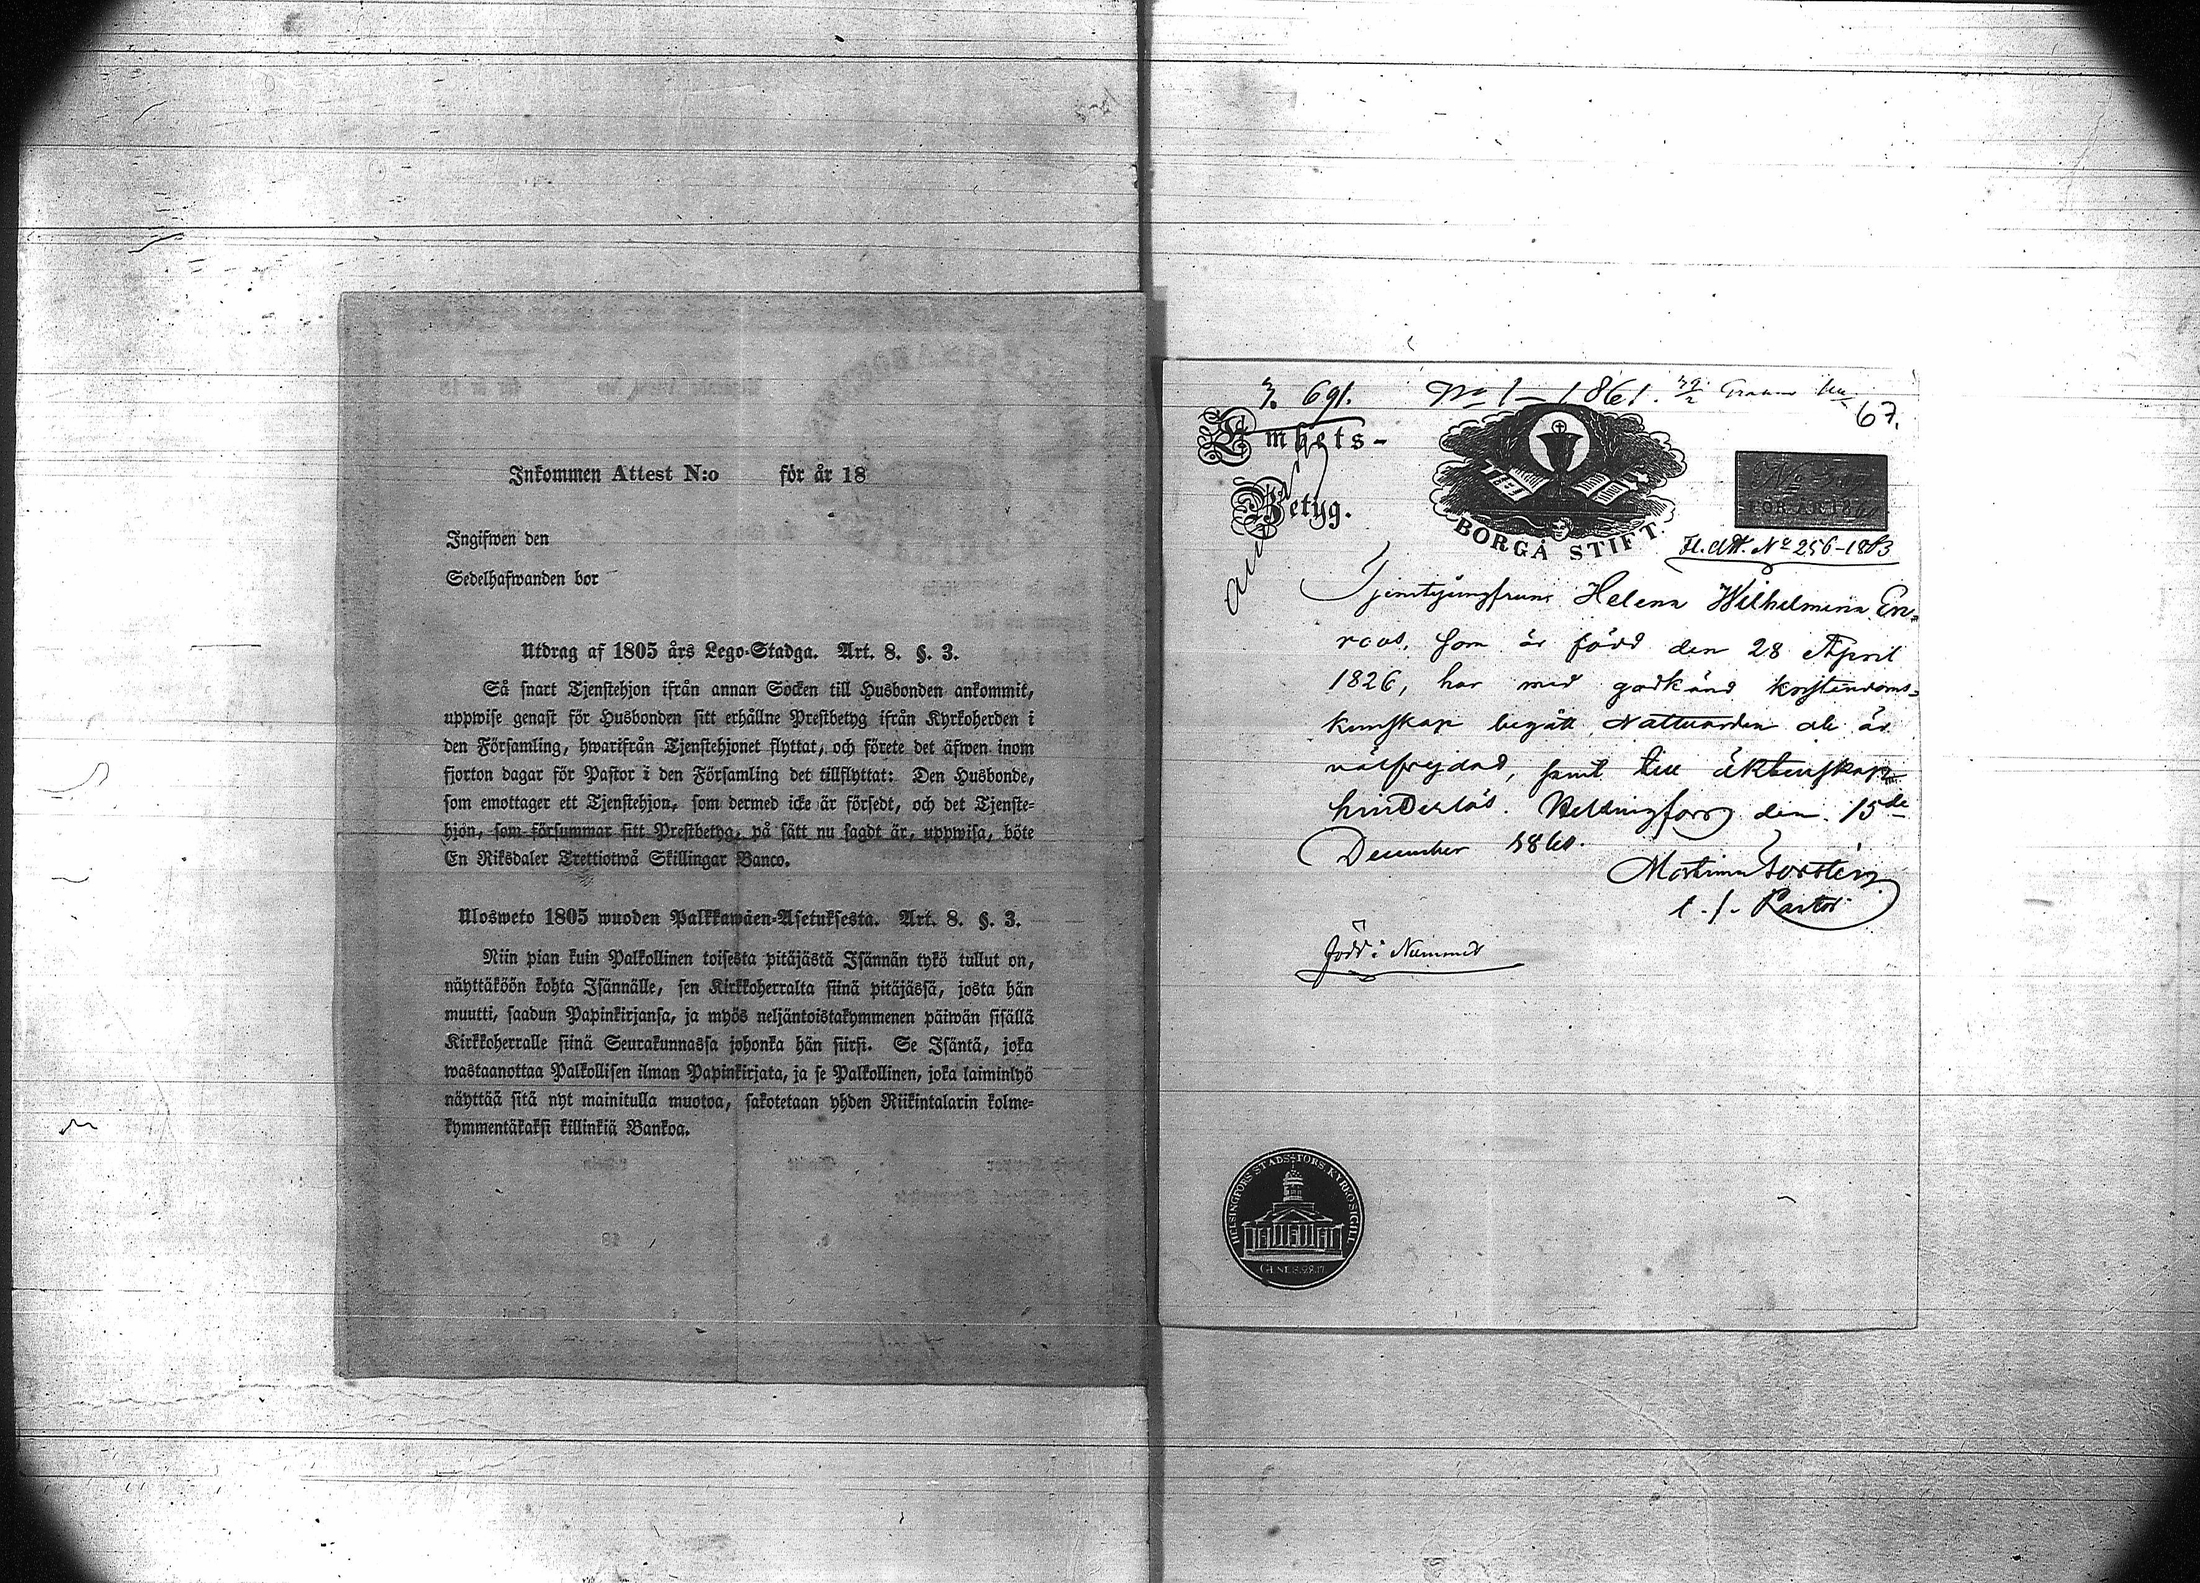 Inkommen Attest N:o för år 18
Ingifwen den
Sedelhafwanden bor
Utdrag af 1805 års Lego-Stadga. Art. 8. §. 3.
Så snart Tjenstehjon ifrån annan Socken till Husbonden ankommit,
uppwise genast för Husbonden sitt erhållne Prestbetyg ifrån Kyrkoherden i
den Församling, hwarifrån Tjenstehjonet flyttat, och förete det äfwen inom
fjorton dagar för Pastor i den Församling det tillflyttat: Den Husbonde,
som emottager ett Tjenstehjon, som dermed icke är försedt, och det Tjenste-
hjon, som försummar sitt Prestbetyg, på sätt nu sagdt är, uppwisa, böte
En Riksdaler Trettiotwå Skillingar Banco.
Ulosweto 1805 wuoden Palkkawäen-Asetuksesta. Art. 8. §. 3.
Niin pian kuin Palkollinen toisesta pitäjästä Isännän tykö tullut on,
näyttäköön kohta Isännälle, sen Kirkkoherralta siinä pitäjässä, josta hän
muutti, saadun Papinkirjansa, ja myös neljäntoistakymmenen päiwän sisällä
Kirkkoherralle siinä Seurakunnassa johonka hän siirsi. Se Isäntä, joka
wastaanottaa Palkollisen ilman Papinkirjata, ja se Palkollinen, joka laiminlyö
näyttää sitä nyt mainitulla muotoa, sakotetaan yhden Riikintalarin kolme-
kymmentäkaksi killinkiä Bankoa.
691. No 1 - 1861.
67.
Embets-
Betyg.
BORGÅ STIFT.
FÖR ÅR 1860
Fl. Att. No 256-1863
Tjenstejungfrun Helena Wilhelmina En-
roos, som är född den 28 April
1826, har med godkänd kristendoms-
kunskap begått Nattvarden och är
välfrejdad, samt till äktenskap
hinderlös. Helsingfors den 15de
December 1860.
t. f. Pastor
född i Nummis
HELSINGFORS STADS FÖRS. KYRKO SIGILL
GENES. 28.17.